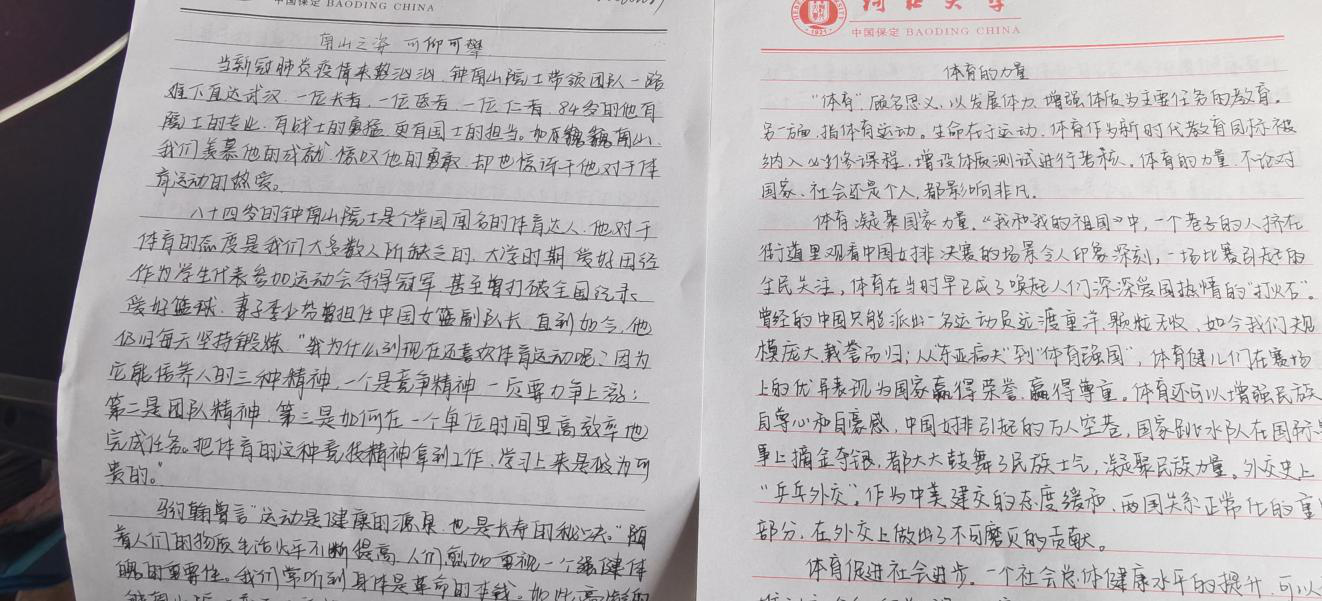 中国保定 BAODING CHINA
南山之姿 可仰可攀
当新冠肺炎疫情来势汹汹,钟南山院士带领团队一路
难下直达武汉,一位长者,一位医者,一位仁者,84岁的他有
院士的专业,有战士的勇猛,更有国士的担当。巍巍南山,
我们羡慕他的成就,惊叹他的勇敢,却也惊讶于他对于体
育运动的热爱。
八十四岁的钟南山院士是个举国闻名的体育达人,他对于
体育的态度是我们大多数人所缺乏的,大学时期爱好田径
作为学生代表参加运动会夺得冠军,甚至曾打破全国纪录
爱好篮球,妻子李少芬曾担任中国女篮副队长,直到如今,他
仍旧每天坚持锻炼。“我为什么到现在还喜欢体育运动呢?因为
它能培养人的三种精神,一个是竞争精神,一定要力争上游;
第二是团队精神,第三是如何在一个单位时间里高效率地
完成任务。把体育的这种竞技精神拿到工作、学习上来是极为可
贵的。”
马约翰曾言“运动是健康的源泉,也是长寿的秘诀。”随
着人们的物质生活水平不断提高,人们愈加重视一个强健体
魄的重要性。我们常听到身体是革命的本钱。如此高龄的
中国保定 BAODING CHINA
体育的力量
“体育”,顾名思义,以发展体力,增强体质为主要任务的教育。
另一方面,指体育运动。生命在于运动,体育作为新时代教育目标被
纳入必修课程,增设体质测试进行考核。体育的力量,不论对
国家、社会还是个人,都影响非凡。
体育凝聚国家力量。《我和我的祖国》中,一个巷子的人挤在
街道里观看中国女排决赛的场景令人印象深刻,一场比赛引起的
全民关注,体育在当时早已成了唤起人们深深爱国热情的“打火石”。
曾经的中国只能派出一名运动员远渡重洋,颗粒无收,如今我们规
模庞大,载誉而归;从“东亚病夫”到“体育强国”,体育健儿们在赛场
上的优异表现为国家赢得荣誉,赢得尊重。体育还可以增强民族
自尊心和自豪感,中国女排引起的万人空巷,国家跳水队在国际
事上摘金夺银,都大大鼓舞了民族士气,凝聚民族力量。外交史上
“乒乓外交”,作为中美建交的态度缓和,两国关系正常化的重
部分,在外交上做出了不可磨灭的贡献。
体育促进社会进步。一个社会总体健康水平的提升,可以